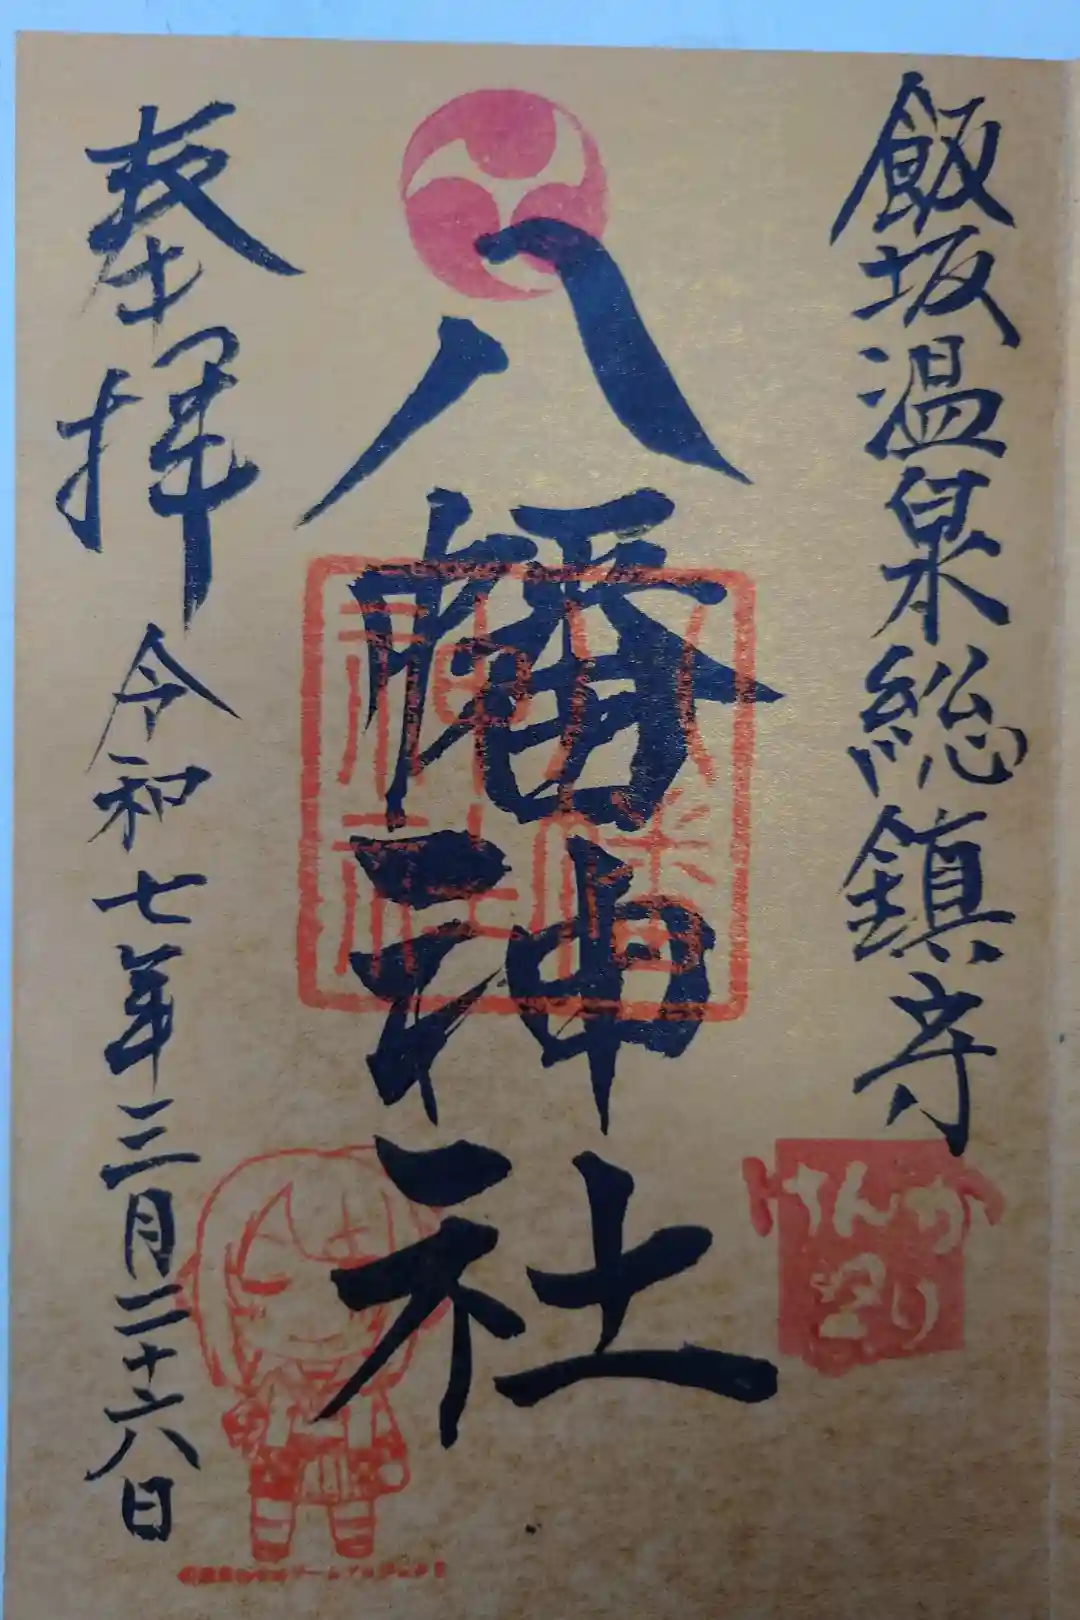 飯坂温泉総鎮守
八幡神社
八幡
神社
けんか
まつり
奉拝
令和七年三月二十六日